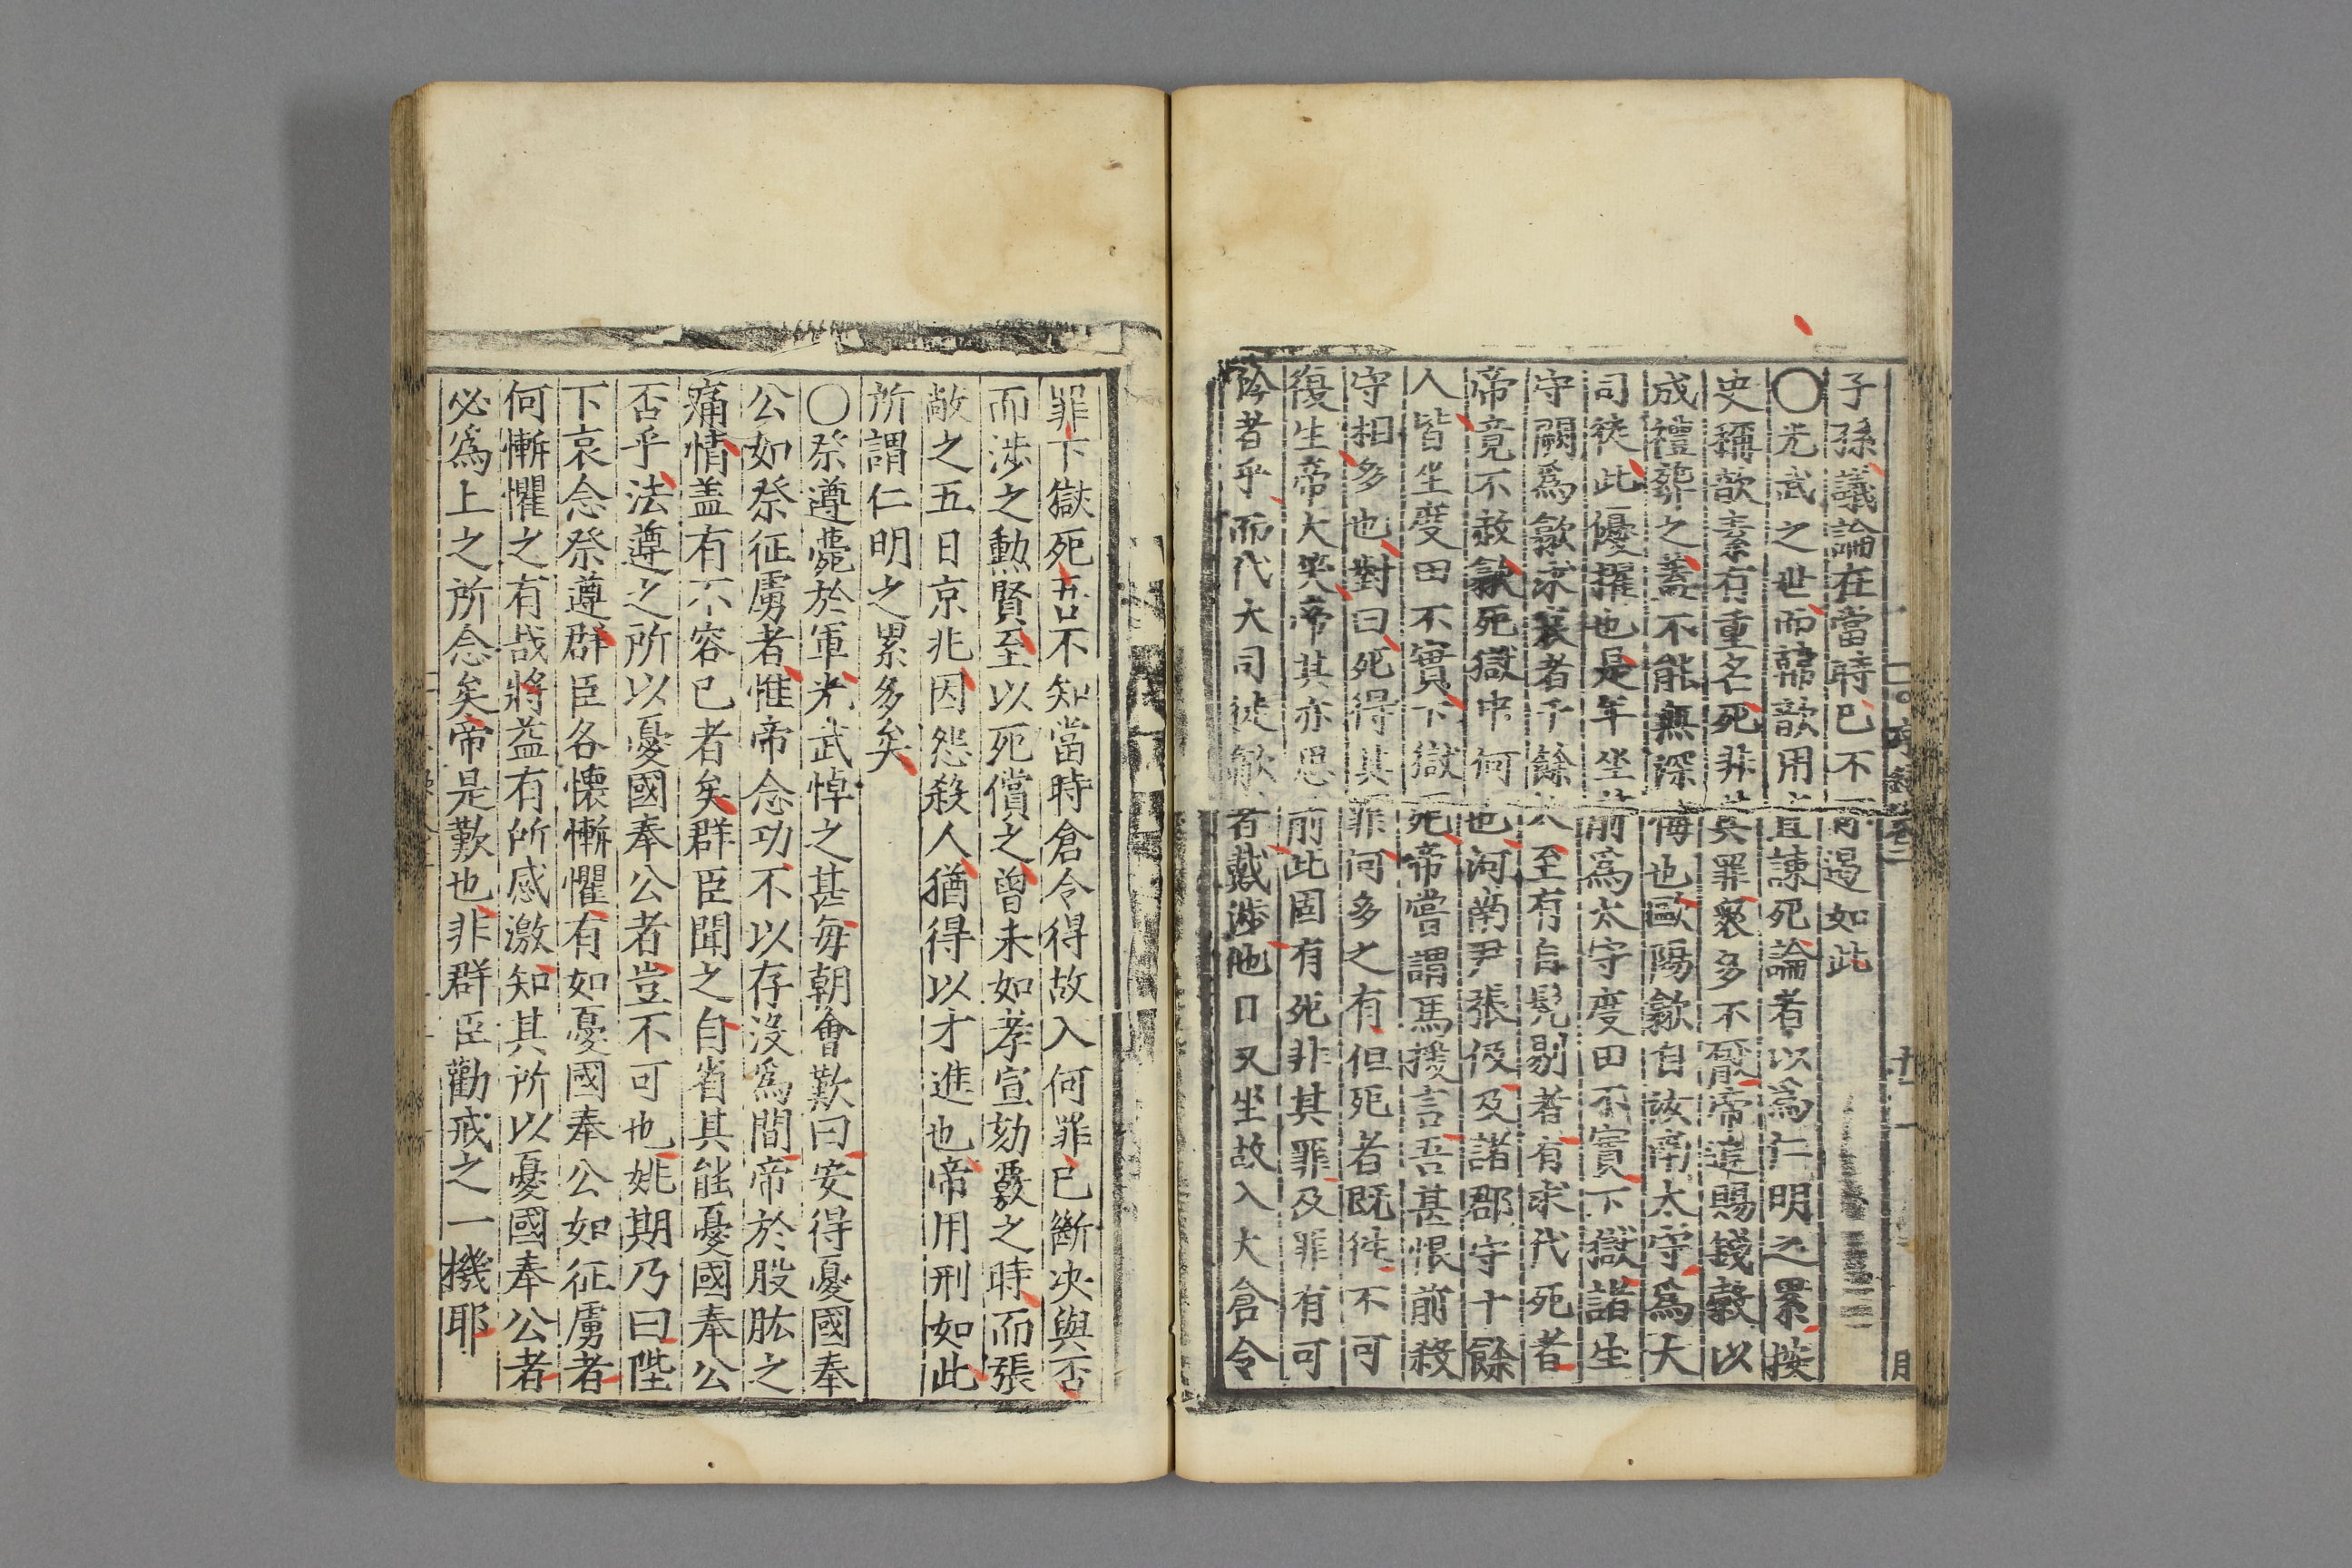 子孫議論在當時已不可遏如此
〇光武之世而韓歆用直諫死論者以為仁明之累按
史稱歆素有重名死非其罪衆多不厭帝追賜錢穀以
成禮葬之蓋不能無深悔也歐陽歙自汝南太守為大
司徒此優擢也是年坐前為太守度田不實下獄諸生
守闕為歙求哀者千餘人至有自髡剔者有求代死者
帝竟不赦歙死獄中河也河南尹張伋及諸郡守十餘
人皆坐度田不實下獄死帝嘗謂馬援言吾甚恨前殺
守相多也對曰死得其罪何多之有但死者既徃不可
復生帝大笑帝其亦思前此固有死非其罪及罪有可
矜者乎而代大司徒歙者戴渉也他日又坐故入大倉令
罪下獄死吾不知當時倉令得故入何罪已斷决與否
而渉之勲賢至以死償之曽未如孝宣劾覈之時而張
敞之五日京兆因怨殺人猶得以才進也帝用刑如此
所謂仁明之累多矣
〇祭遵薨於軍光武悼之甚每朝會歎曰安得憂國奉
公如祭征虜者惟帝念功不以存没為間帝於股肱之
痛情盖有不容已者矣群臣聞之自省其能憂國奉公
否乎法遵之所以憂國奉公者豈不可也姚期乃曰陛
下哀念祭遵群臣各懐慚懼有如憂國奉公如征虜者
何慚懼之有哉將益有所感激知其所以憂國奉公者
必為上之所念矣帝是歎也非群臣勸戒之一機耶